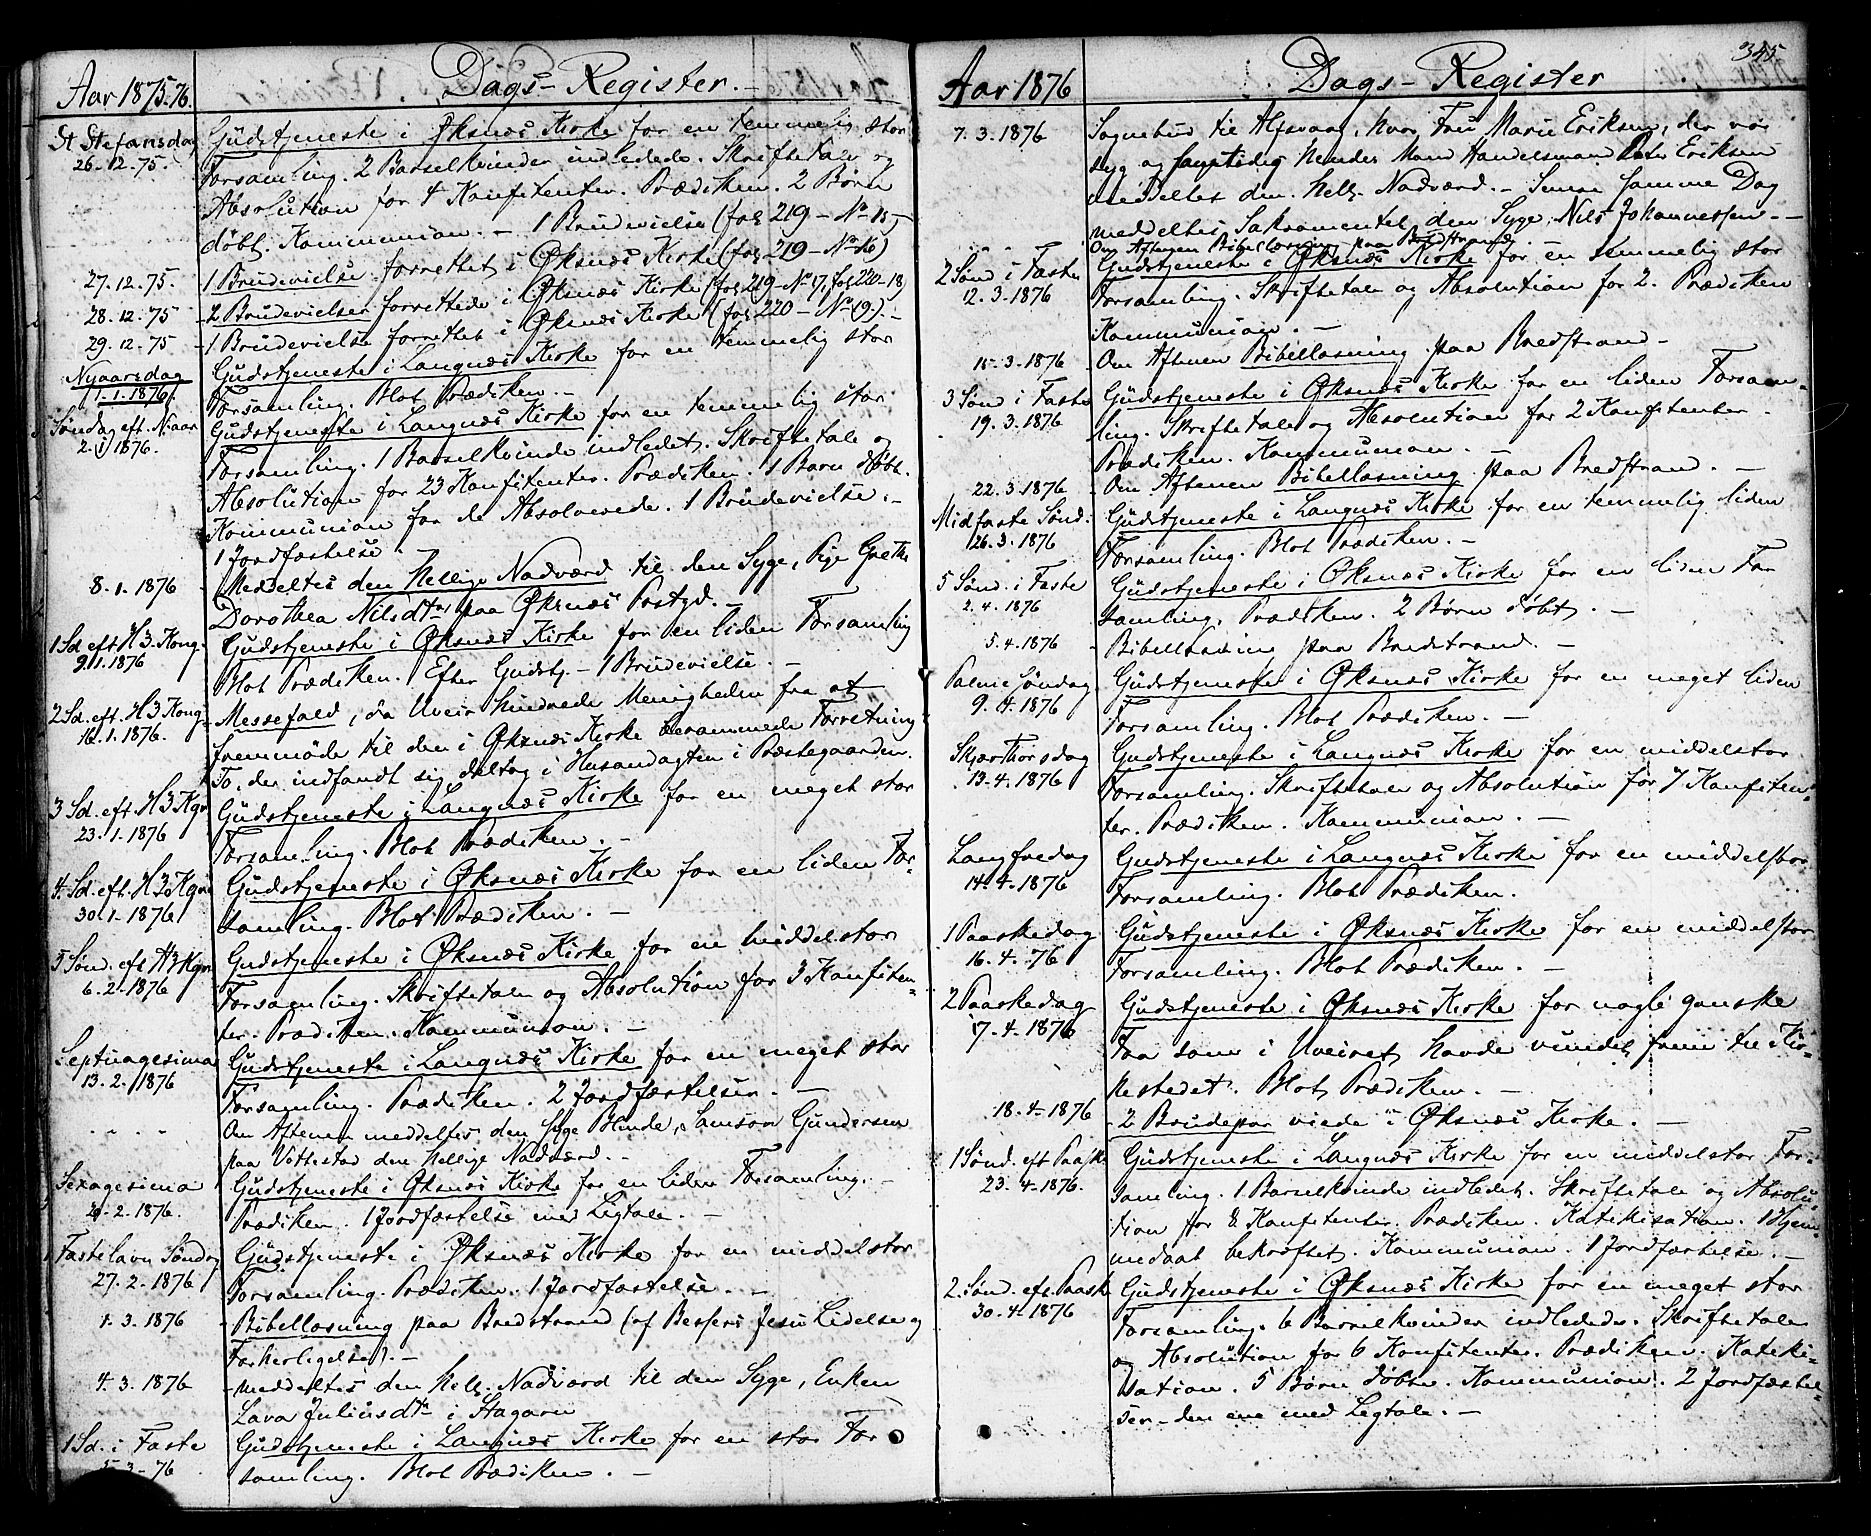 Aar 1875-76.
Dags-Register.-
St Stefansdag
26-12-75.
Gudstjeneste i Øksnæs Kirke for en temmelig stor
Forsamling. 2 Barselkvinder indledede. Skriftetale og
Absolution for 4 Konfitenter. Prædiken. 2 Børn
døbt. Kommunion. - 1 Brudevielse (fol 219 - No 15-
27.12.75.
1 Brudevielse forrettet i Øksnæs Kirke (fol 219 - No 16)
28.12.75
-2 Brudevielser forrettede i Øksnæs Kirke (fol 219-No 17, fol 220-18)
29.12.75
-1 Brudevielse forrettet i Øksnæs Kirke (fol 220 - No 19).-
Nyaarsdag
1.1.1876.
Gudstjeneste i Langnæs Kirke for en temmelig stor
Forsamling. Blot Prædiken.-
Søndag eft. N.aar
2.(1)1876.
Gudstjeneste i Langnæs Kirke for en temmelig stor
Forsamling. 1 Barselkvinde indledet. Skriftetale og
Absolution for 23 Konfitenter. Prædiken. 1 Barn døbt.
Kommunion for de Absolverede. 1 Brudevielse.-
1 Jordfæstelse.
8.1.1876
- Meddeltes den hellige Nadværd til den Syge, Pige Grethe
Dorothea Nilsdtr paa Øksnæs Præstgd.-
1 Sd eft H3 Kong-
9.1.1876
Gudstjeneste i Øksnæs Kirke for en liden Forsamling
Blot Prædiken. Efter Gudstj.- 1 Brudevielse.-
2 Sd. eft. H3 Kong-
16.1.1876.
Messefald, da Uveir hindrede Menigheden fra at
fremmøde til den i Øksnæs Kirke berammede Forretning
To, der indfandt sig deltog i Husandagten i Præstegaarden.
3 Sd. eft. H3 Kgr
23.1.1876
Gudstjeneste i Langnæs Kirke for en meget stor
Forsamling. Blot Prædiken.-
4. Sd. eft. H3 Kgr
30.1-1876
Gudstjeneste i Øksnæs Kirke for en liden For-
samling. Blot Prædiken.-
5 Sønd. eft H3 Kgr
6.2.1876
Gudstjeneste i Øksnæs Kirke for en middelstor
Forsamling. Skriftetale og Absolution for 3 Konfiten-
ter. Prædiken. Kommunion.-
Septuagesima
13.2.1876
Gudstjeneste i Langnæs Kirke for en meget stor
Forsamling. Prædiken. 2 Jordfæstelser.-
Om Aftenen meddeltes den syge Blinde, Samson Gundersen
paa Vottestad den hellige Nadværd.-
Sexagesima
20.2.1876.
Gudstjeneste i Øksnæs Kirke for en liden Forsamling.-
Prædiken. 1 Jordfæstelse med Ligtale.-
Fastelavn Søndag
27.2.1876
Gudstjeneste i Øksnæs Kirke for en middelstor
Forsamling. Prædiken. 1 Jordfæstelse.-
1.3.1876
- Bibellæsning paa Bredstrand (af Bessers Jesu Lidelse og
Forherligelse).-
4.3.1876
-meddeltes den hell. Nadværd til den Syge, Enken
Lava Juliusdtr i Stagarn
1 Sd. i Faste
5.3-76
Gudstjeneste i Langnæs Kirke for en stor For
samling. Blot Prædiken.-
345.
Aar 1876
Dags-Register
7.3.1876
Sognebud til Alfsvaag, hvor Fru Marie Eriksen, der var
syg og samtidig hendes Mand Handelsmand Peter Eriksen
meddeltes den hell. Nadværd.- Senere samme Dag
meddeltes Sakramentet den Syge, Nils Johannessen.-
Om Aftenen Bibellæsning paa Bredstrand.
2 Sønd i Faste
12.3.1876
Gudstjeneste i Øksnæs Kirke for en temmelig stor
Forsamling. Skriftetale og Absolution for 2. Prædiken
Kommunion.-
15.3.1876
- Om Aftenen Bibellæsning paa Bredstrand-
3 Sønd i Faste
19.3.1876
Gudstjeneste i Øksnæs Kirke for en liden Forsam-
ling. Skriftetale og Absolution for 2 Konfitenter.
Prædiken. Kommunion.-
22.3.1876
- Om Aftenen Bibellæsning paa Bredstrand.-
Midfaste Sønd.
26.3.1876
Gudstjeneste i Langnæs Kirke for en temmelig liden
Forsamling. Blot Prædiken.-
5 Sønd. i Faste
2.4.1876
Gudstjeneste i Øksnæs Kirke for en liden For
samling. Prædiken. 2 Børn døbt.-
5.4.1876
- Bibellæsning paa Bredstrand.-
Palme Søndag
9.4.1876
Gudstjeneste i Øksnæs Kirke for en meget liden
Forsamling. Blot Prædiken.-
Skjærthorsdag
13.4.1876
Gudstjeneste i Langnæs Kirke for en middelstor
Forsamling. Skriftetale og Absolution for 7 Konfiten-
ter. Prædiken. Kommunion.-
Langfredag
14.4.1876
Gudstjeneste i Langnæs Kirke for en middelstor
Forsamling. Blot Prædiken.
1 Paaskedag
16.4.76
Gudstjeneste i Øksnæs Kirke for en middelstor
Forsamling. Blot Prædiken.-
2 Paaskedag
17.4.1876
Gudstjeneste i Øksnæs Kirke for nogle ganske
Faa som i Uveiret havde vundet frem til Kir-
kestedet. Blot Prædiken.-
18.4.1876
- 2 Brudepar viede i Øksnæs Kirke.-
1 Sønd. eft Paask
23.4.1876.
Gudstjeneste i Langnæs Kirke for en middelstor For-
samling. 1 Barselkvinde indledet. Skriftetale og Absolu
tion for 8 Konfitenter. Prædiken. Katekisation. 1 Hjem
medaab bekræftet. Kommunion. 1 Jordfæstelse.-
2. Sønd. eft. Paask
30.4.1876
Gudstjeneste i Øksnæs Kirke for en meget stor
Forsamling. 6 Barselkvinder indledede. Skriftetale
og Absolution for 6 Konfitenter. Prædiken. Kateki-
sation. 5 Børn døbte. Kommunion. 2 Jordfæstel-
ser - den ene med Ligtale.-